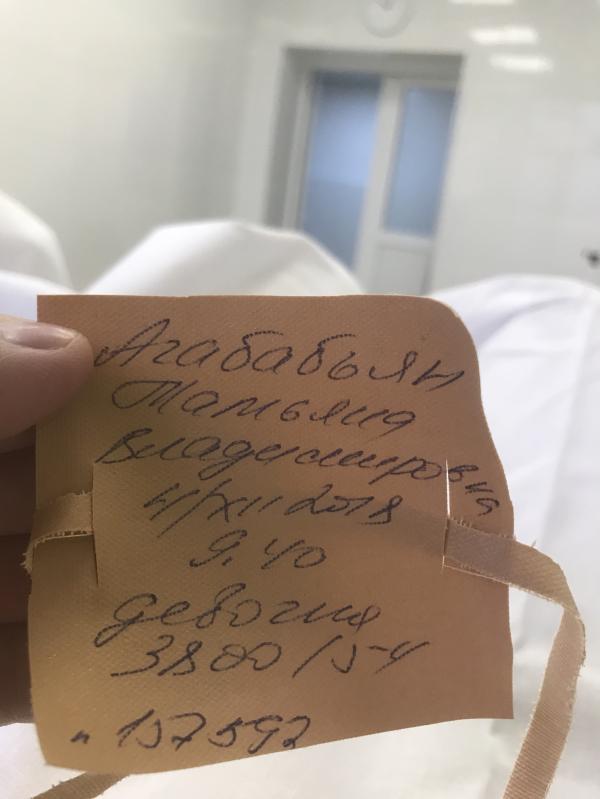 Агабабьян
Татьяна
Владимировна
4/XII 2018
9.40
девочка
3800/54
н 157592